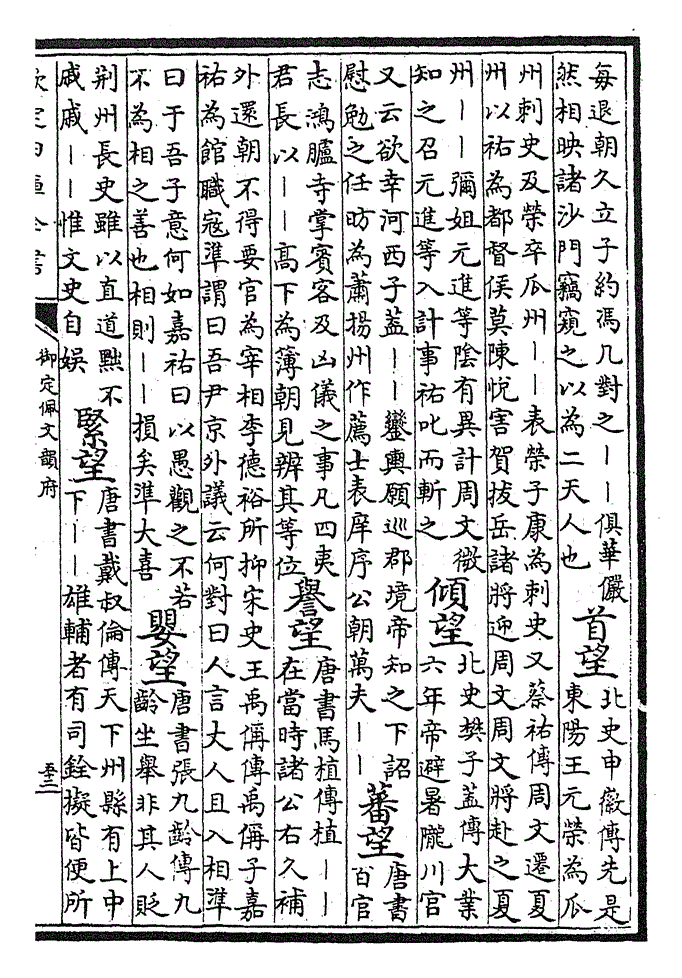 每退朝久立子約馮几對之丨丨俱華儼
然相映諸沙門竊窺之以為二天人也
首望
北史申徽傳先是
東陽王元榮為瓜
州刺史及榮卒瓜州丨丨表榮子康為刺史又蔡祐傳周文遷夏
州以祐為都督侯莫陳悅害賀拔岳諸將迎周文周文將赴之夏
州丨丨彌姐元進等陰有異計周文微
知之召元進等入計事祐叱而斬之
傾望
北史樊子蓋傳大業
六年帝避暑隴川宮
又云欲幸河西子蓋丨丨鑾輿願巡郡境帝知之下詔
慰勉之任昉為蕭揚州作薦士表庠序公朝萬夫丨丨
蕃望
唐書
百官
志鴻臚寺掌賓客及凶儀之事凡四夷
君長以丨丨高下為簿朝見辨其等位
譽望
唐書馬植傳植丨丨
在當時諸公右久補
外還朝不得要官為宰相李德裕所抑宋史王禹偁傳禹偁子嘉
祐為館職寇準謂曰吾尹京外議云何對曰人言丈人且入相準
曰于吾子意何如嘉祐曰以愚觀之不若
不為相之善也相則丨丨損矣準大喜
嬰望
唐書張九齡傳九
齡坐舉非其人貶
荆州長史雖以直道黜不
戚戚丨丨惟文史自娛
緊望
唐書戴叔倫傳天下州縣有上中
下丨丨雄輔者有司銓擬皆便所
欽定四庫全書
御定佩文韻府